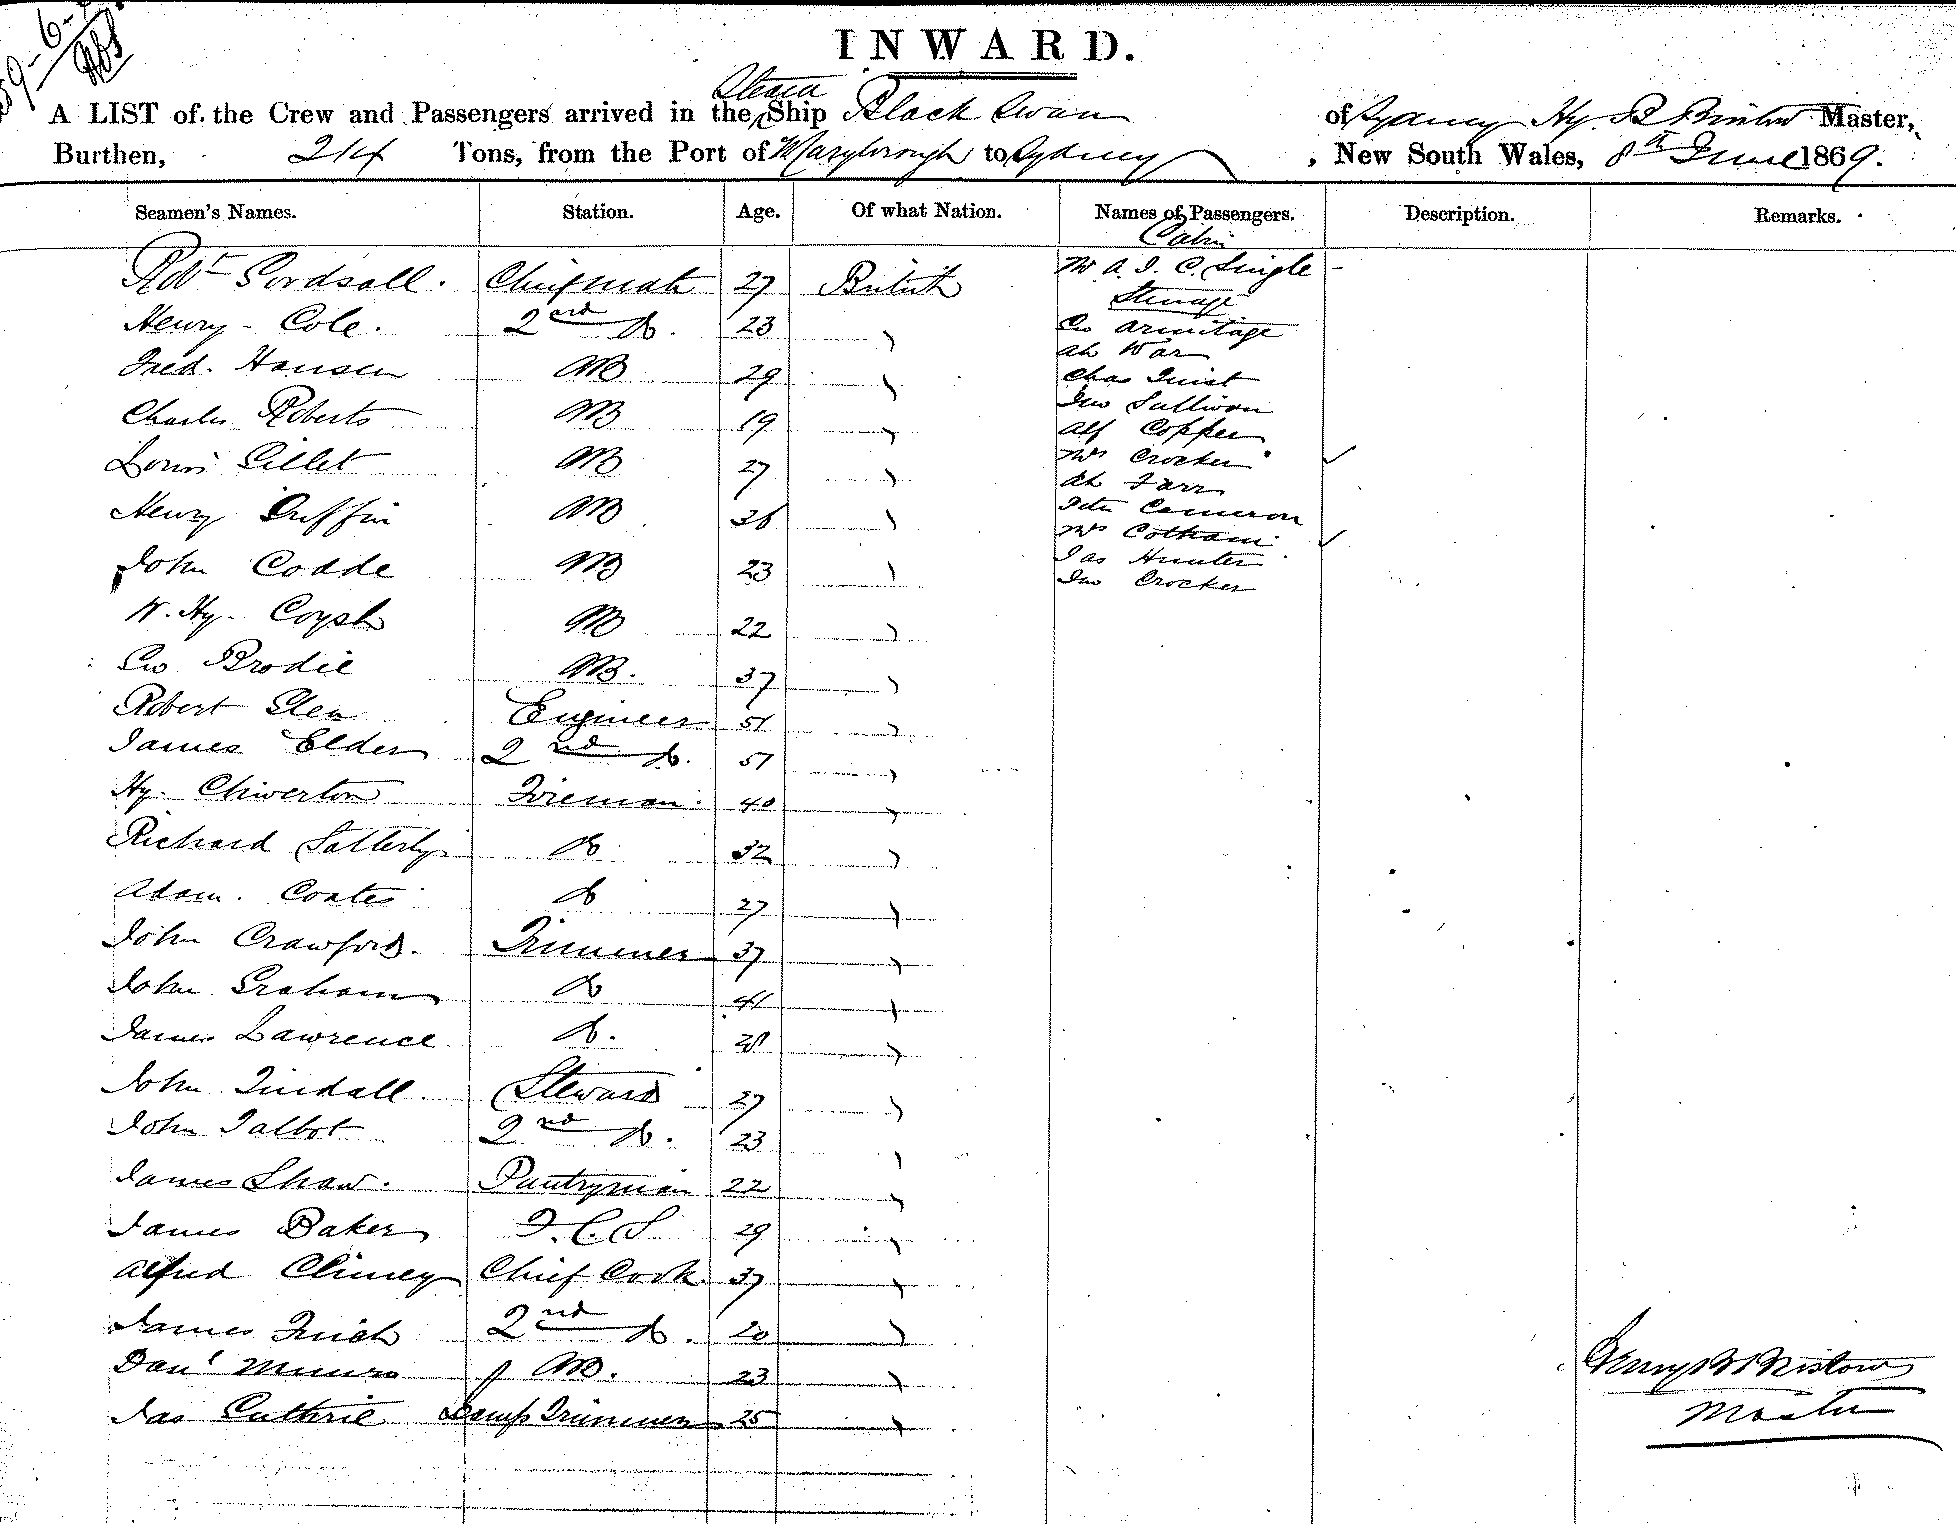 INWARD.
A LIST of the Crew and Passengers arrived in the Steam Ship Black Swan of Sydney Hy. B Bristow Master,
Burthen, 214 Tons, from the Port of Maryborough to Sydney, New South Wales, 8th June 1869.
Seamen's Names. Station. Age. Of what Nation. Names of Passengers. Description. Remarks.
Cabin
Robt Sordsall. Chief mate 27 British
Mr A. J. C. Single
Steerage
Henry Cole. 2nd Do. 23
Geo Armitage
Ah War
Fred. Hansen AB 29
Chas Quist
Jno Sullivan
Charles Roberts AB 19
Alf Copper
Louis Gillet AB 27
Mrs Crocker
Ah Farr
Henry Duffin AB 36
Peter Cameron
Mrs Cotham
John Codde AB 23
Jas Hunter
Jno Crocker
W. Hy. Coysh AB 22
Geo Brodie AB. 37
Robert Glen Engineer 51
James Elder 2nd Do. 51
Hy. Chiverton Fireman. 40
Richard Satterly Do 32
Adam. Coates Do 27
John Crawford. Trimmer 37
John Graham Do 41
James Lawrence Do.
John Tindall Steward 27
John Talbot 2nd Do. 23
James Shaw. Pantryman 22
James Baker F.C.S 29
Alfred Chief Cook. 37
James 2nd Do. 20
Danl Munro AB. 23
Jas Guthrie Lamp Trimmer 25
Henry B Bristow
Master